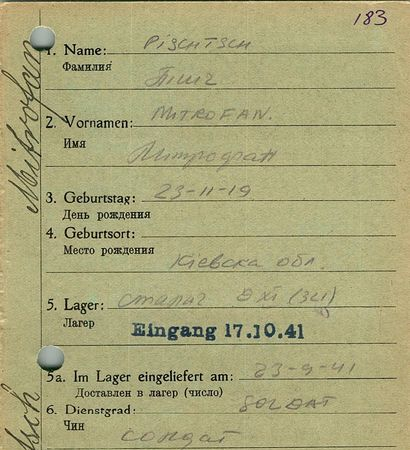 183
1. Name: PISCHTSCH
Фамилия
Пищ
2. Vornamen: MITROFAN.
Имя
Митрофан
3. Geburtstag: 23-11-19
День рождения
4. Geburtsort:
Место рождения
Кіевска обл.
5. Lager: сталаг
Лагер
Eingang 17.10.41
5a. Im Lager eingeliefert am: 23-9-41
Доставлен в лагер (число)
6. Dienstgrad: SOLDAT
Чин
солдат
Mitrofan